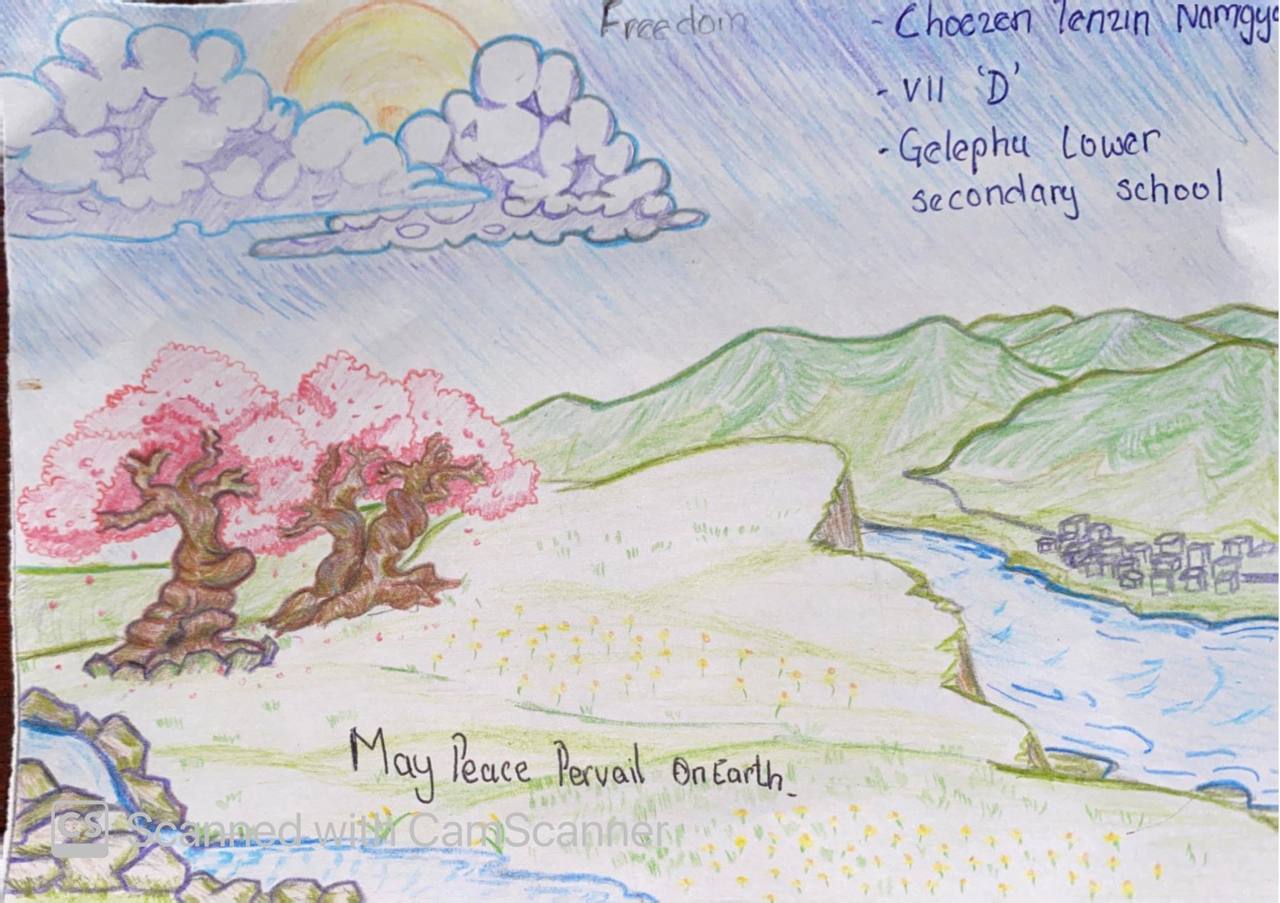 Freedom
- Choezen Tenzin Namgya
- VII 'D'
- Gelephu Lower
secondary school
May Peace Pervail On Earth.
CS Scanned with CamScanner